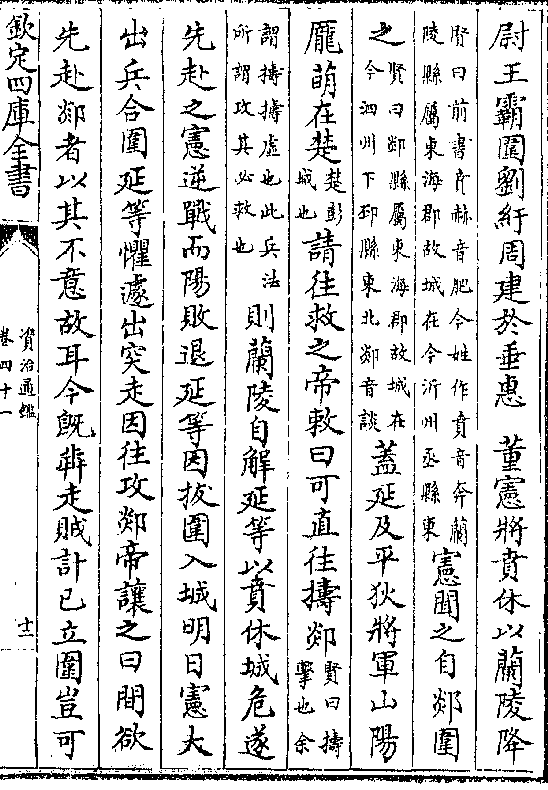 尉王霸圍劉紆周建於垂惠　董憲將賁休以蘭陵降
賢曰前書賁赫音肥今姓作賁音奔蘭
陵縣屬東海郡故城在今沂州丞縣東
憲聞之自郯圍
之
賢曰郯縣屬東海郡故城在
今泗州下邳縣東北郯音談
蓋延及平狄將軍山陽
龐萌在楚
楚彭
城也
請往救之帝敕曰可直往擣郯
賢曰擣
擊也余
謂擣擣虛也此兵法
所謂攻其必救也
則蘭陵自解延等以賁休城危遂
先赴之憲逆戰而陽敗退延等因拔圍入城明日憲大
出兵合圍延等懼遽出突走因往攻郯帝讓之曰間欲
先赴郯者以其不意故耳今既犇走賊計已立圍豈可
欽定四庫全書
資治通鑑
卷四十一
十二